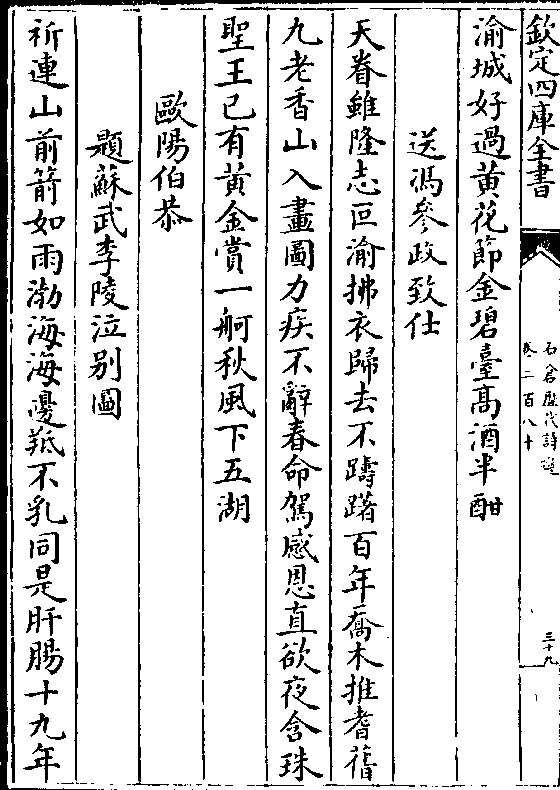 欽定四庫全書
石倉歷代詩選
卷二百八十
三十九
渝城好過黃花節金碧臺高酒半酣
送馮參政致仕
天眷雖隆志叵渝拂衣歸去不躊躇百年喬木推耆舊
九老香山入畫圖力疾不辭春命駕感恩直欲夜含珠
聖王已有黃金賞一舸秋風下五湖
歐陽伯恭
題蘇武李陵泣别圖
祈連山前箭如雨渤海海邊羝不乳同是肝腸十九年